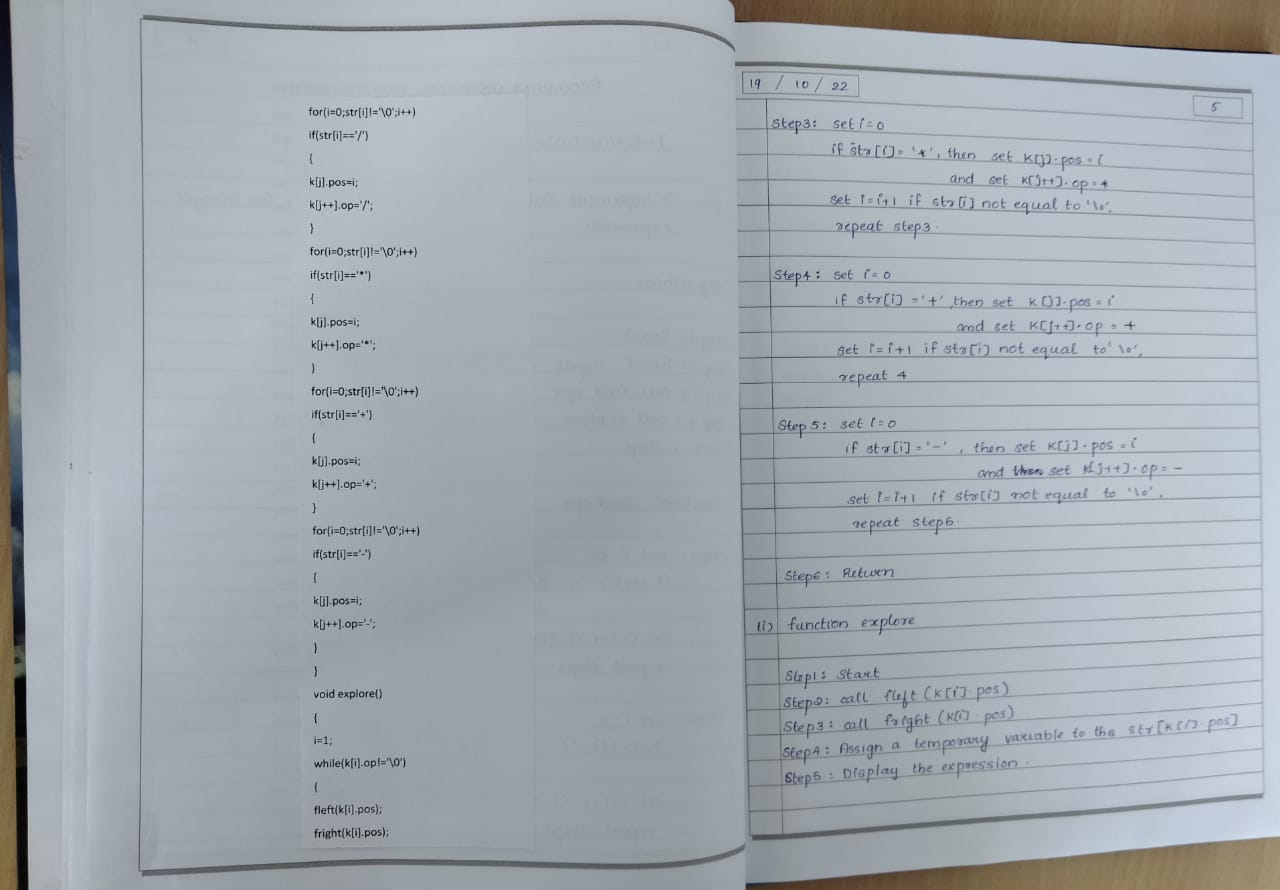 for(i=0;str[i]!='\0';i++)
if(str[i]=='/')
{
k[j].pos=i;
k[j++].op='/';
}
for(i=0;str[i]!='\0';i++)
if(str[i]=='*')
{
k[j].pos=i;
k[j++].op='*';
}
for(i=0;str[i]!='\0';i++)
if(str[i]=='+')
{
k[j].pos=i;
k[j++].op='+';
}
for(i=0;str[i]!='\0';i++)
if(str[i]=='-')
{
k[j].pos=i;
k[j++].op='-';
}
}
void explore()
{
i=1;
while(k[i].op!='\0')
{
fleft(k[i].pos);
fright(k[i].pos);
19 / 10 / 22
5
Step3: set i=0
if str[i]= '*', then set K[j].pos = i
and set K[j++].op = *
set i=i+1 if str[i] not equal to '\0',
repeat step3.
Step4: set i=0
if str[i] = '+', then set K[j].pos = i
and set K[j++].op = +
set i=i+1 if str[i] not equal to '\0',
repeat 4
Step 5: set i=0
if str[i] = '-', then set K[j].pos = i
and set K[j++].op = -
set i=i+1 if str[i] not equal to '\0',
repeat step5.
Step6: Return
(i) function explore
Step1: Start
Step2: call fleft (K[i].pos)
Step3: call fright (K[i].pos)
Step4: Assign a temporary variable to the str[K[i].pos]
Step5: Display the expression.